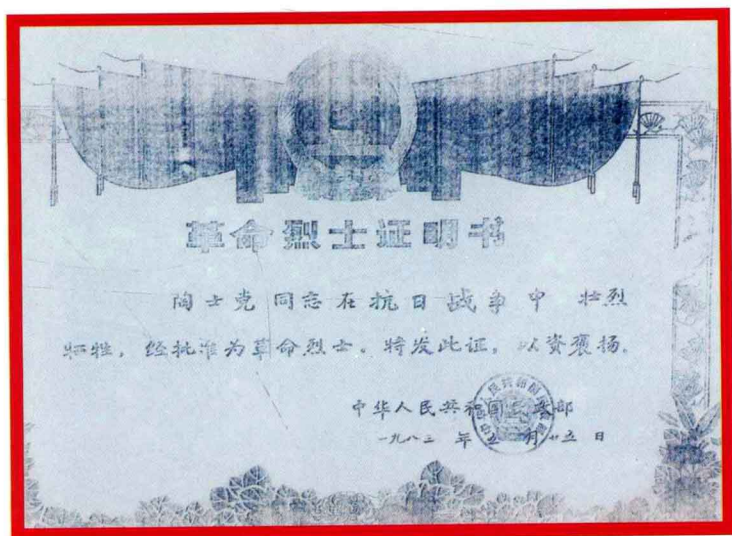 革命烈士证明书
陶士党同志在抗日战争中 壮烈
牺牲，经批准为革命烈士。特发此证，以资褒扬。
中华人民共和国民政部
一九八三 年 五 月 廿五 日